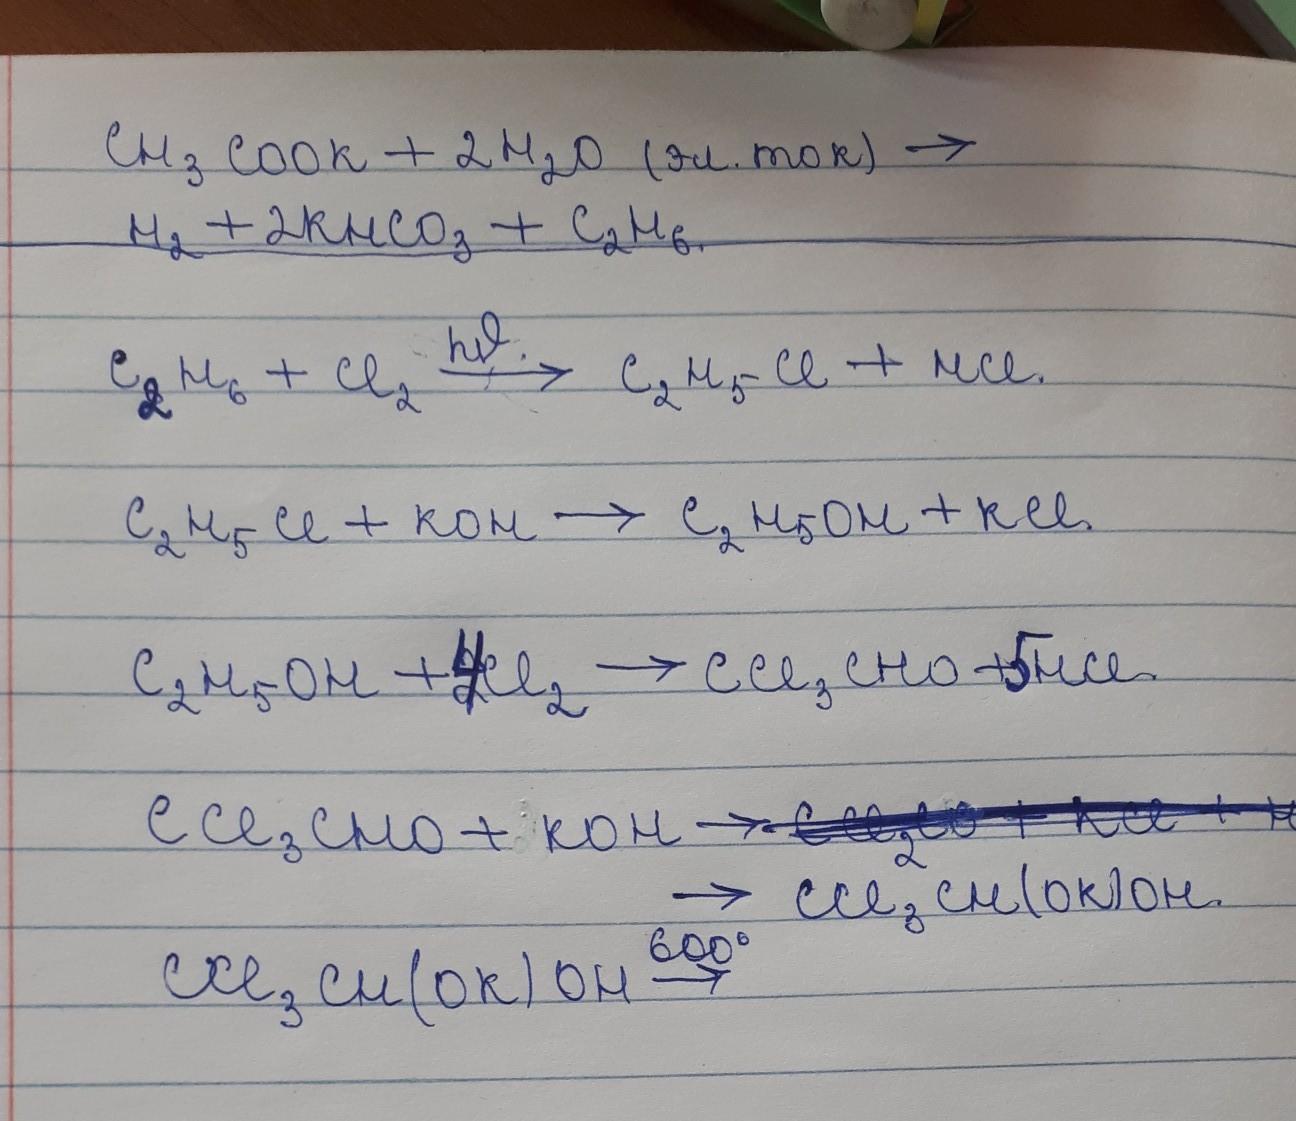 CH₃COOK + 2H₂O (эл. ток) →
H₂ + 2KHCO₃ + C₂H₆.
C₂H₆ + Cl₂ hν. → C₂H₅Cl + HCl.
C₂H₅Cl + KOH → C₂H₅OH + KCl.
C₂H₅OH + 4Cl₂ → CCl₃CHO + 5HCl.
CCl₃CHO + KOH →
→ CCl₃CH(OK)OH.
CCl₃CH(OK)OH 600° →